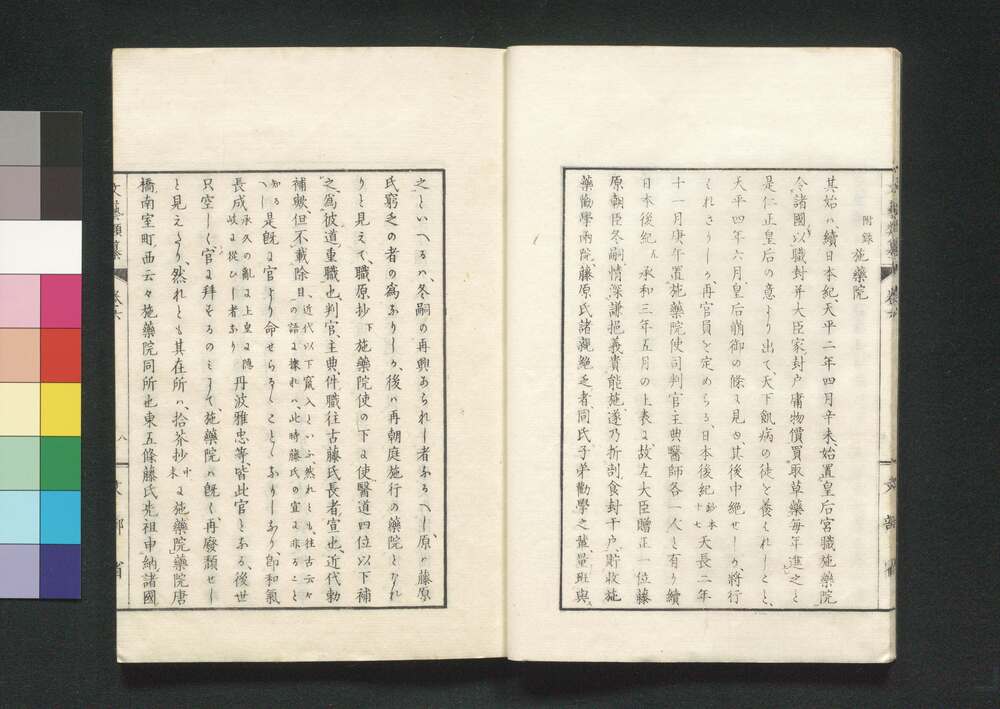 附錄
施藥院
其始ハ續日本紀天平二年四月辛未、始置皇后宮職施藥院
令諸國以職封幷大臣家封戸庸物價買取草藥每年進之と
是仁正皇后の意より出て、天下飢病の徒を養はれしと
天平四年六月、皇后崩御の條に見ゆ、其後中絶せしか、將行
くれさりしか、再官員を定めらる、日本後紀鈔本十七天長二年
十一月庚午置施藥院使司判官主典醫師各一人と有り續
日本後紀ん承和三年五月の上表に、故左大臣贈正一位藤
原朝臣冬嗣情深謙挹義貴能施遂乃折割食封千戸、貯收施
藥勸學兩院、藤原氏諸親絶乏者同氏子弟勸學之輩量班與
之といへるハ、冬嗣の再興あられし者なるへし、原ハ藤原
氏窮乏の者の爲なりしか、後ハ再朝庭施行の藥院となれ
りと見えて、職原抄下施藥院使の下に使醫道四位以下補
之、爲彼道重職也、判官、主典、件職往古藤氏長者宣也、近代勅
補歟、但不載除目、近代以下竄入といふ然れとも、往古云々の語に據れハ、此時藤氏の宣に非ること
知るへし是既に官より命せらるゝことゝなりしなり、卽和氣
長成承久の亂に上皇に隱岐に從ひし者なり丹波雅忠等、皆此官となる、後世
只空しく官に拜するのミにて、施藥院ハ既く再廢頽せし
と見えたり、然れとも其在所ハ、拾芥抄中末に施藥院藥院唐
橋南室町西云々施藥院同所也東五條藤氏先祖申納諸國
文藝類纂 卷六 八 文部省